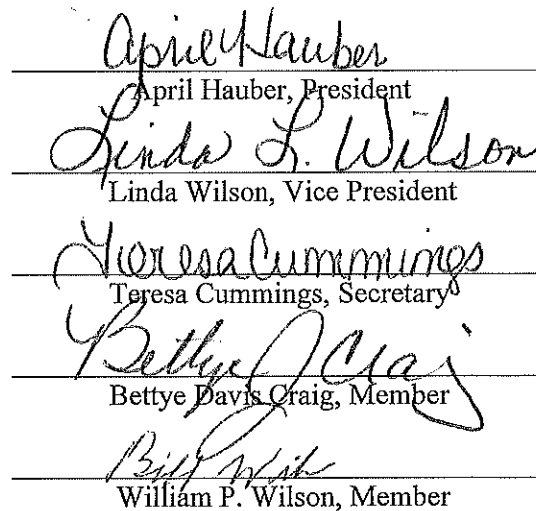 April Hauber
April Hauber, President
Linda L. Wilson
Linda Wilson, Vice President
Teresa Cummings
Teresa Cummings, Secretary
Bettye J Craig
Bettye Davis Craig, Member
Bill
William P. Wilson, Member